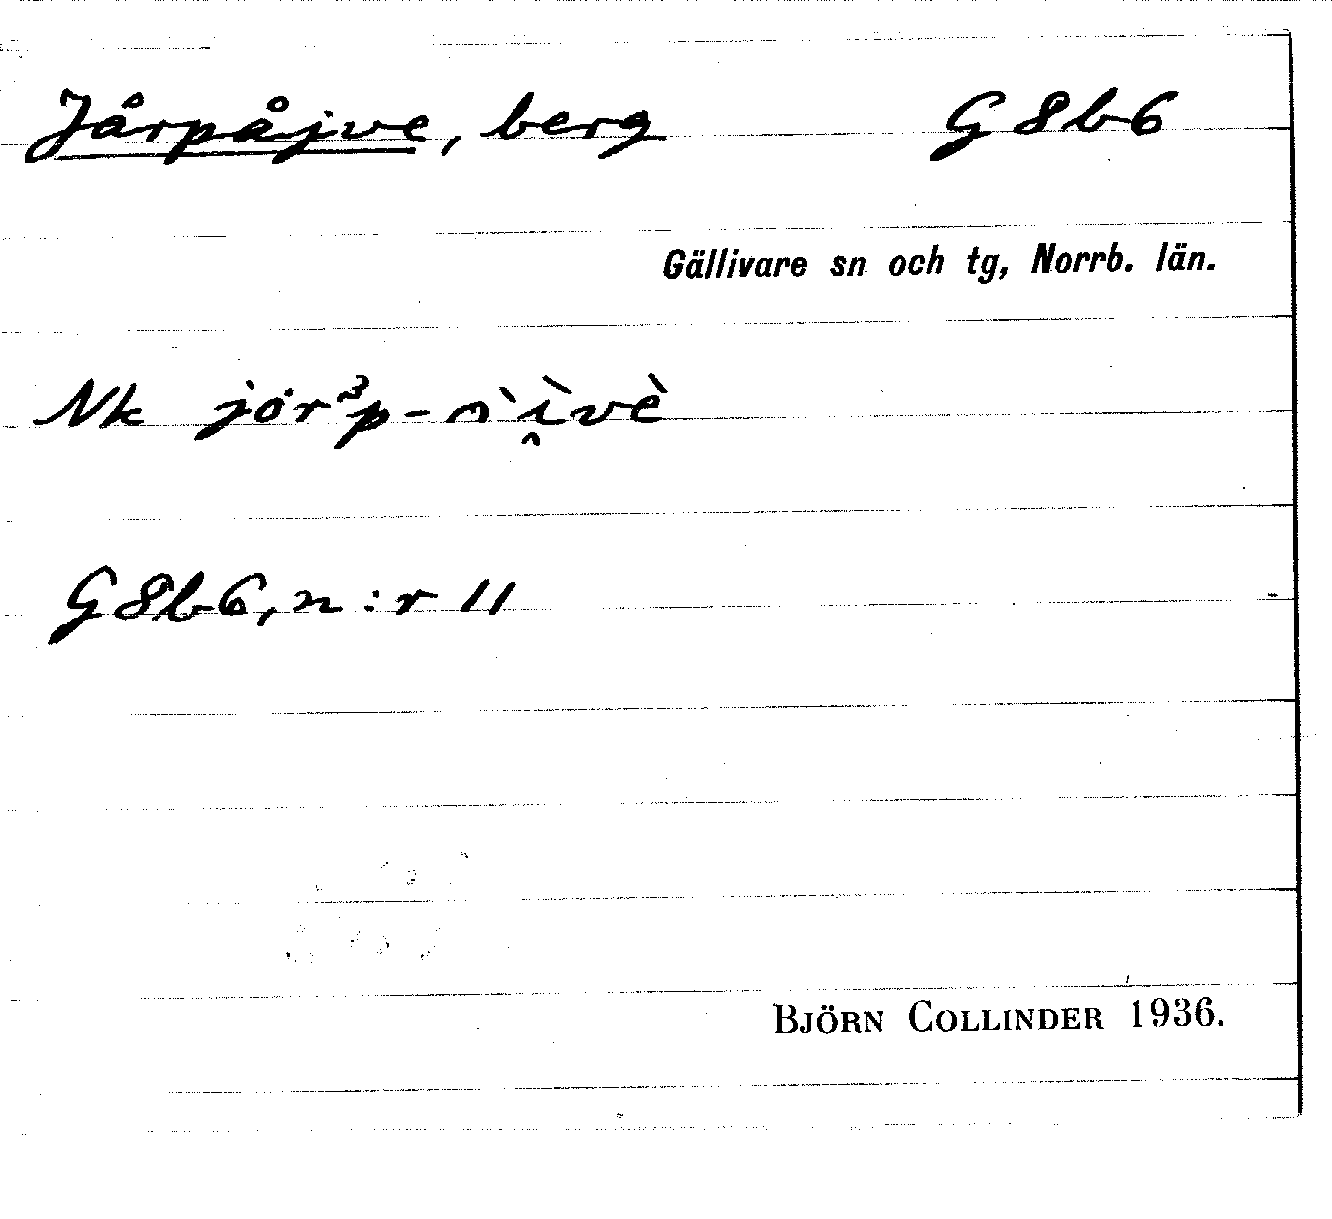 Jårpåjve, berg G 8 b 6
Gällivare sn och tg, Norrb. län.
Nk
G 8 b 6, n:r 11
BJÖRN COLLINDER 1936.